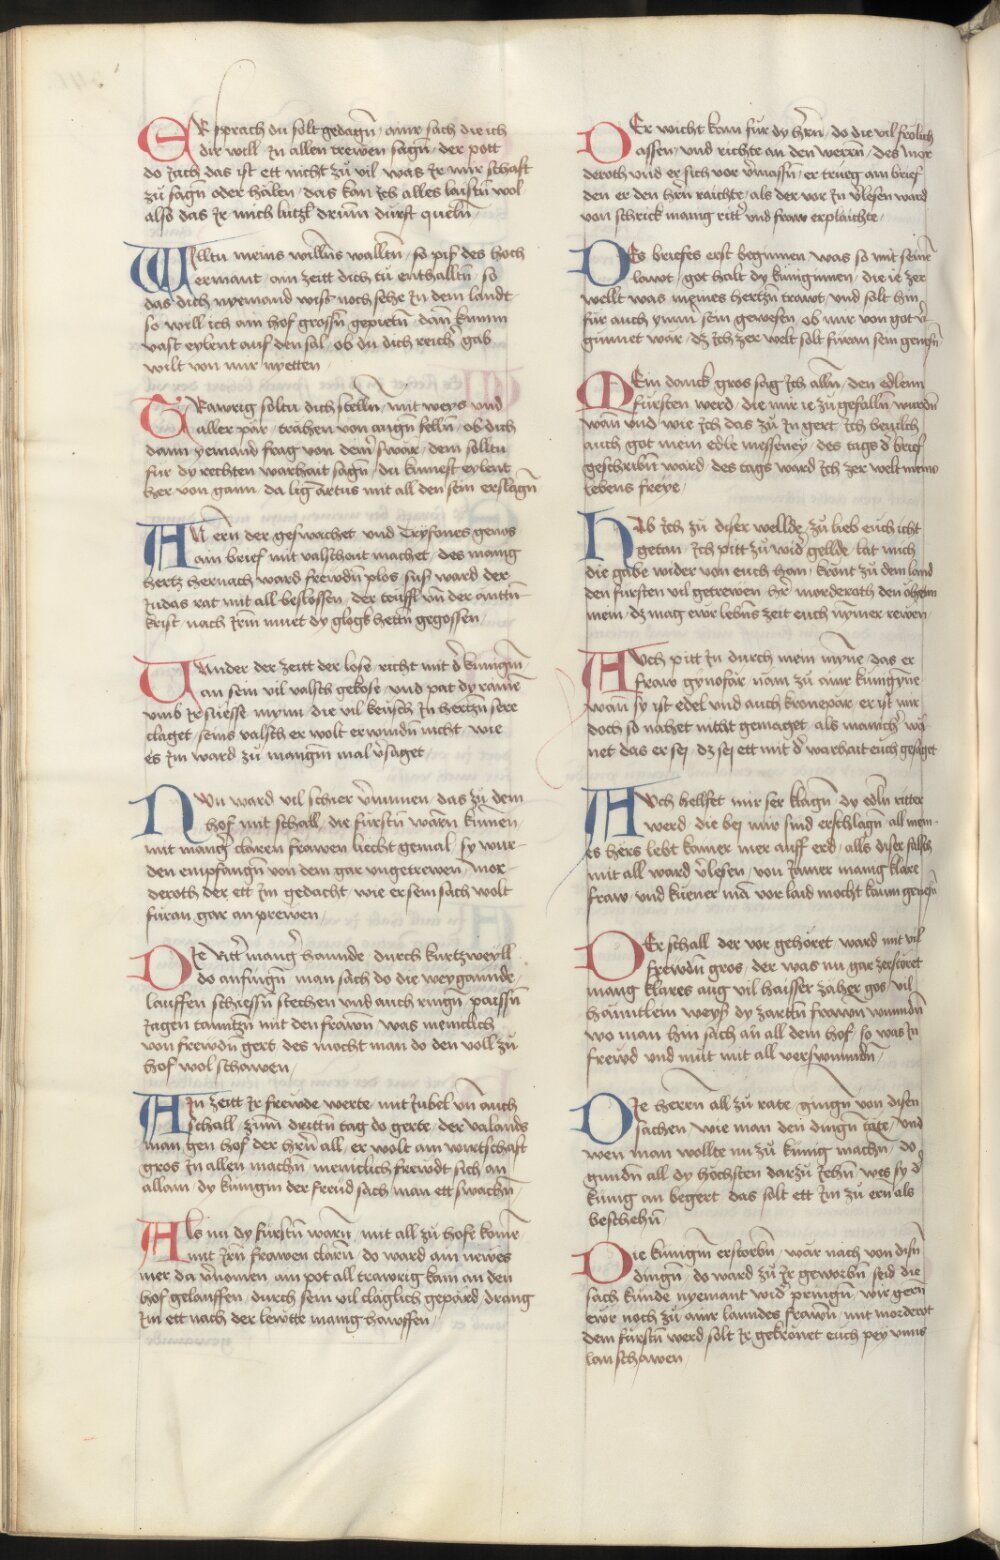 ER sprach du solt gedagn̄ / ainr sach die ich
dir will / Jn allen trewen sagn̄ / der pott
do Jach das ist ett nicht zu vil / was Jr mir schafft
zu sagn̄ oder hälen / das kan Jch alles laistn̄ wol
also das Jr mich lutzl̄ drum̄ durft queln̄ /
WIltu meins willn̄s wallttn̄ / so pis des hoch
ermant / ain zeitt dich tu enthalltn̄ / so
das dich nyemand wiß noch sehe Jn dem landt
so will ich ain hof grossn̄ gepietn̄ / dan̄ kumm
vast eylent auf den sal / ob du dich reicher gab
wilt von mir nyetten /
TRawrig soltu dich stelln̄ / mit weys und
aller pär / trähen von augn̄ felln̄ / ob dich
dann yemand frag von deinr swär / dem solltu
für dy rechten warhait sagn̄ / du kumest eylent
her von gann / da lig Artus mit all den sein erslagn̄
AN ern̄ der geswachet / und Tryssones genos
ain brief mit valschait machet / des manig
hertz hernach ward frewdn̄ plos / suß ward der
Judas rat mit all beslossen / der teuffl vn̄ der anttn̄
krist / nach Jrm̄ muet dy glogk hettn̄ gegossen /
UNnder der zeitt der lose / richt mit d' kunigin̄
an sein vil valsch gekose / und pat dy raine
umb Jr suesse mynn / die vil keusch Jn hertzn̄ sere
claget / seins valsch er wolt erwindn̄ nicht / wie
es Jm ward zu mangm̄ mal v'saget
NUn ward vil schier v'numen / das zu dem
hof mit schall / die furstn̄ warn̄ kumen /
mit mang' claren frawen liecht gemal / sy wur-
den empfangn̄ von dem gar ungetrewen / mor-
deroth der ett Jm gedacht / wie er sein sach wolt
furan gar an prewen /
DIe ritt' mang' hannde / durch kurtzweyll
do anfingn̄ / man sach do die weyganndt /
lauffen schiessn̄ stechen und auch ringn̄ / paissn̄
Jagen tanntzn̄ mit den frawn̄ / was menicklich
von frewdn̄ gert / des mocht man do den voll zu
hof wol schawen /
AIn zeitt Jr frewde werte / mit Jubel vn̄ auch
schall / zum̄ drittn̄ tag do gerte / der valannds
man / gen hof der hern̄ all / er wolt ain wirtschafft
gros Jn allen machn̄ / menicklich frewdt sich an
allain / dy kunigin der freud sach man ett swachn̄ /
ALs nu dy furstn̄ warn̄ / mit all zu hofe kome
mit Jrn̄ frawen clarn̄ / do ward ain newes
mer da v'nomen / ain pot all trawrig kam an den
hof gelauffen / durch sein vil cläglich gepärd drang
Jm ett nach der lewtte manig hawffen /
DEr wicht kom fur dy hern̄ / do die vil frolich
assen / und richte an den werrn̄ / des mor
deroth vnd er sich vor v'massn̄ / er trueg ain brief
den er den hern̄ raichte / als der vor Jn v'lesen ward
von schrick manig ritt' und fraw erplaichte /
DEs briefes erst beginnen / was so mit seinr
lawt / got halt dy kuniginnen / die ie zer
wellt was meines hertzn̄ trawt / und solt hin
fur auch ymm' sein gewesen / ob mir von got v'
gunnet wär / dz Jch zer welt solt furan sein genesn̄
MEin danck gros sag Jch alln̄ / den edlenn
fursten werd / die mir ie zu gefalln̄ / wurdn̄
wan̄ und wie Jch das zu Jn gert / Jch bevilch
auch got mein edle messeney / des tags d' brief
geschribn̄ ward / des tags ward Jch zer welt meins
lebens freye /
HAb Jch zu diser wellde / zu lieb euch icht
getan / Jch pitt zu wid' gellde / lat mich
die gabe wider von euch han / kront zu dem land
den fursten vil getrewen / her morderoth den öheim
mein / dz mag ewr lebns zeit euch nymer rewen
AUch pitt Jn durch mein myne / das er
fraw gynofär näm zu ainr kungyne
wan̄ sy ist edel und auch kronepär / er ist mir
doch so nahet nicht gemaget / als manich' wä-
net das er sej / dz sej ett mit d' warhait euch gesaget
AUch hellfet mir ser klagn̄ / dy edln̄ ritter
werd / die bej mir sind erschlagn̄ / all mein-
es hers lebt kainer mer auff erd / alls diser falsch
mit all ward v'lesen / von Jamer manig klare
fraw / und kuener ma͞ vor laid mocht kaum genesn̄
DEr schall der vor gehöret / ward mit vil
frewdn̄ gros / der was nu gar zerstöret
mang klares aug vil haisser zäher gos / vil
hanntlein weyß dy zarttn̄ frawn̄ wunndn̄
wo man hin sach an all dem hof / so was Jn
frewd und mut mit all verswunndn̄ /
DIe herren all zu rate / gingn̄ von disen
sachen / wie man den dingn̄ täte / und
wen man wollte nu zu kunig machn̄ / do
gundn̄ all dy höchsten darzu Jehn̄ / wes sy d'
kunig an begert / das solt ett Jm zu ern als
beschehn̄
DIe kunigin erstorbn̄ / wär nach von disn̄
dingn̄ / do ward zu Jr geworbn̄ / seid die
sach kunde nyemant wid' pringn̄ / wir gern̄
ewr noch zu ainr lanndes frawn̄ / mit morderot
dem furstn̄ werd / solt Jr gekrönet euch pey unns
lan schawen /